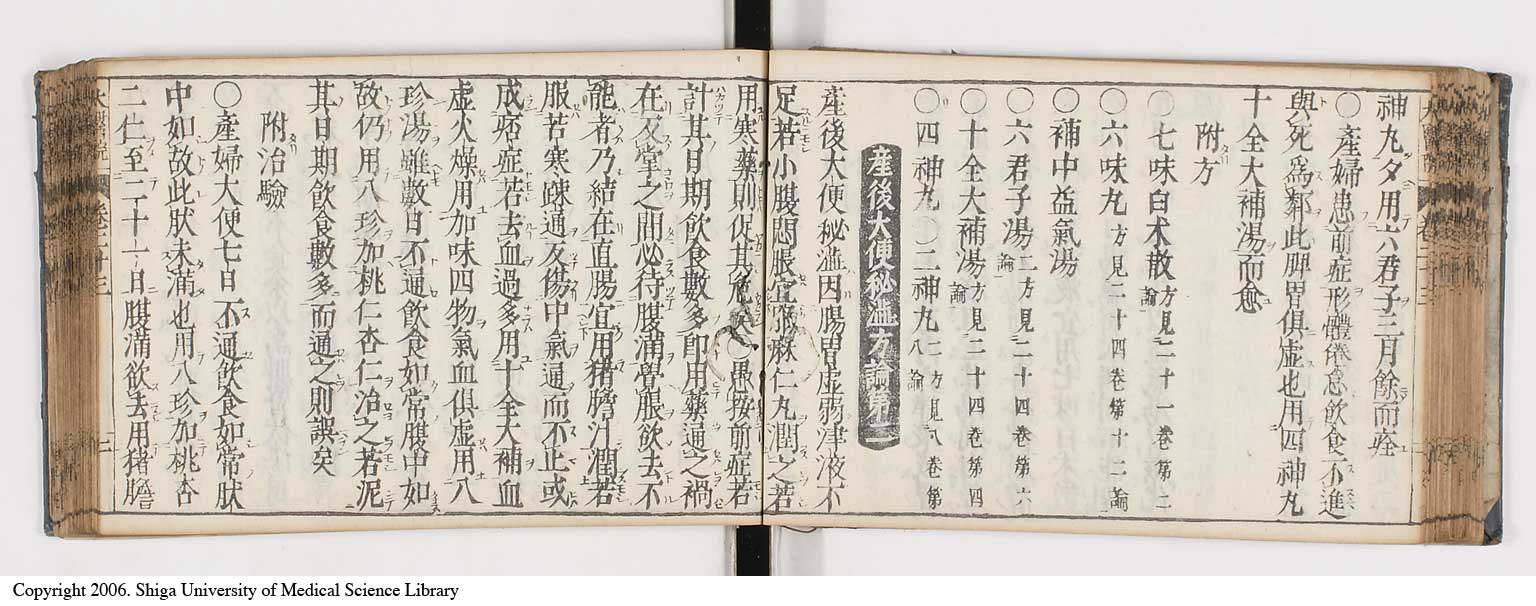 神丸夕用六君子三月餘而痊
○産婦患前症形體倦怠飲食不進
與死爲鄰此脾胃俱虚也用四神丸
十全大補湯而愈
附方
○七味白术散方見二十一卷第二論
○六味丸方見二十四卷第十二論
○補中益氣湯
○六君子湯二方見二十四卷第六論
○十全大補湯方見二十四卷第四論
○四神丸○二神丸二方見八卷第八論
産後大便秘澁方論第二
産後大便秘澁因腸胃虚弱津液不
足若小腹悶脹宜服麻仁丸潤之若
用寒藥則促其危矣○愚按前症若
計其日期飲食數多即用藥通之禍
在反掌之間必待腹滿覺脹欲去不
能者乃結在直腸宜用猪膽汁潤若
服苦寒踈通反傷中氣通而不止或
成痞症若去血過多用十全大補血
虚火燥用加味四物氣血俱虚用八
珍湯雖數日不通飲食如常腹中如
故仍用八珍加桃仁杏仁治之若泥
其日期飲食數多而通之則誤矣
附治驗
○産婦大便七日不通飲食如常腹
中如故此腹未滿也用八珍加桃杏
二仁至二十一日腹滿欲去用猪膽
Copyright 2006. Shiga University of Medical Science Library